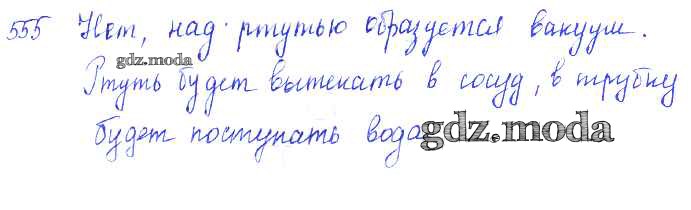 555 Нет, над ртутью образуется вакуум.
gdz.moda
Ртуть будет вытекать в сосуд, в трубку
будет поступать вода.
gdz.moda